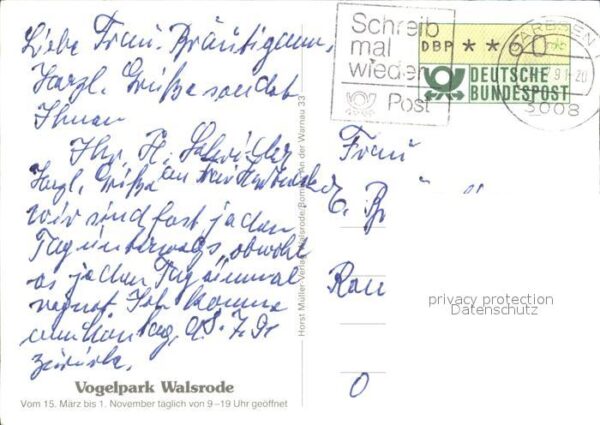 Liebe Frau Bräutigam,
Herzl. Grüße sendet
Ihnen
Ihr H.
Herzl. Grüße an
wir sind fast jeden
Tag unterwegs, obwohl
es jeden Tag einmal
regnet. Ich komme
am Montag, 7.91
zurück.
Vogelpark Walsrode
Vom 15. März bis 1. November täglich von 9–19 Uhr geöffnet
Horst Müller-Verlag Walsrode An der Warnau 33
Schreib
mal
wieder
Post
DBP **60
DEUTSCHE
BUNDESPOST
3008
Frau
privacy protection
Datenschutz